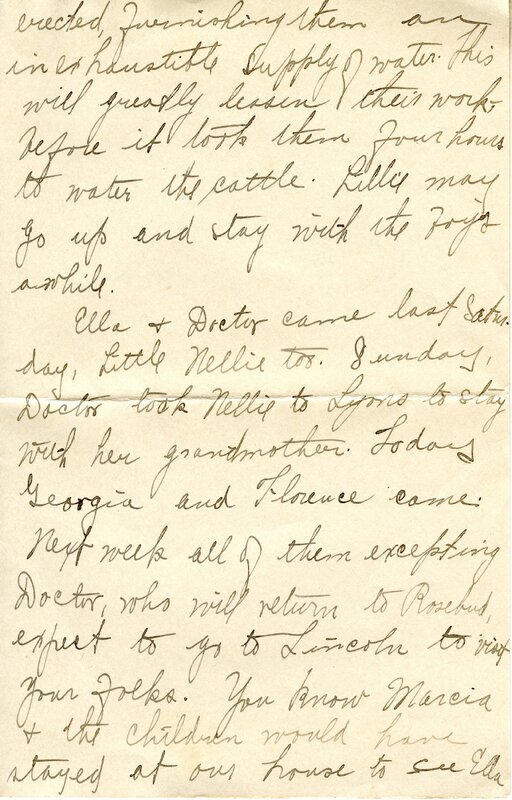 erected, furnishing them an
inexhaustible supply of water. This
will greatly lessen their work.
before it took them four hours
to water the cattle. Lillie may
go up and stay with the boys
awhile.
Ella & Doctor came last Satur-
day, Little Nellie too. Sunday,
Doctor took Nellie to Lyons to stay
with her grandmother. Today
Georgia and Florence came.
Next week all of them excepting
Doctor, who will return to Rosebud,
expect to go to Lincoln to visit
your folks. You know Marcia
& the children would have
stayed at our house to see Ella